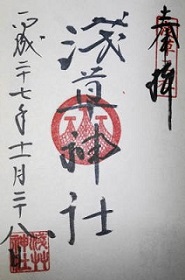 奉拝
浅草神社
平成二十七年十一月二十八日
浅草神社